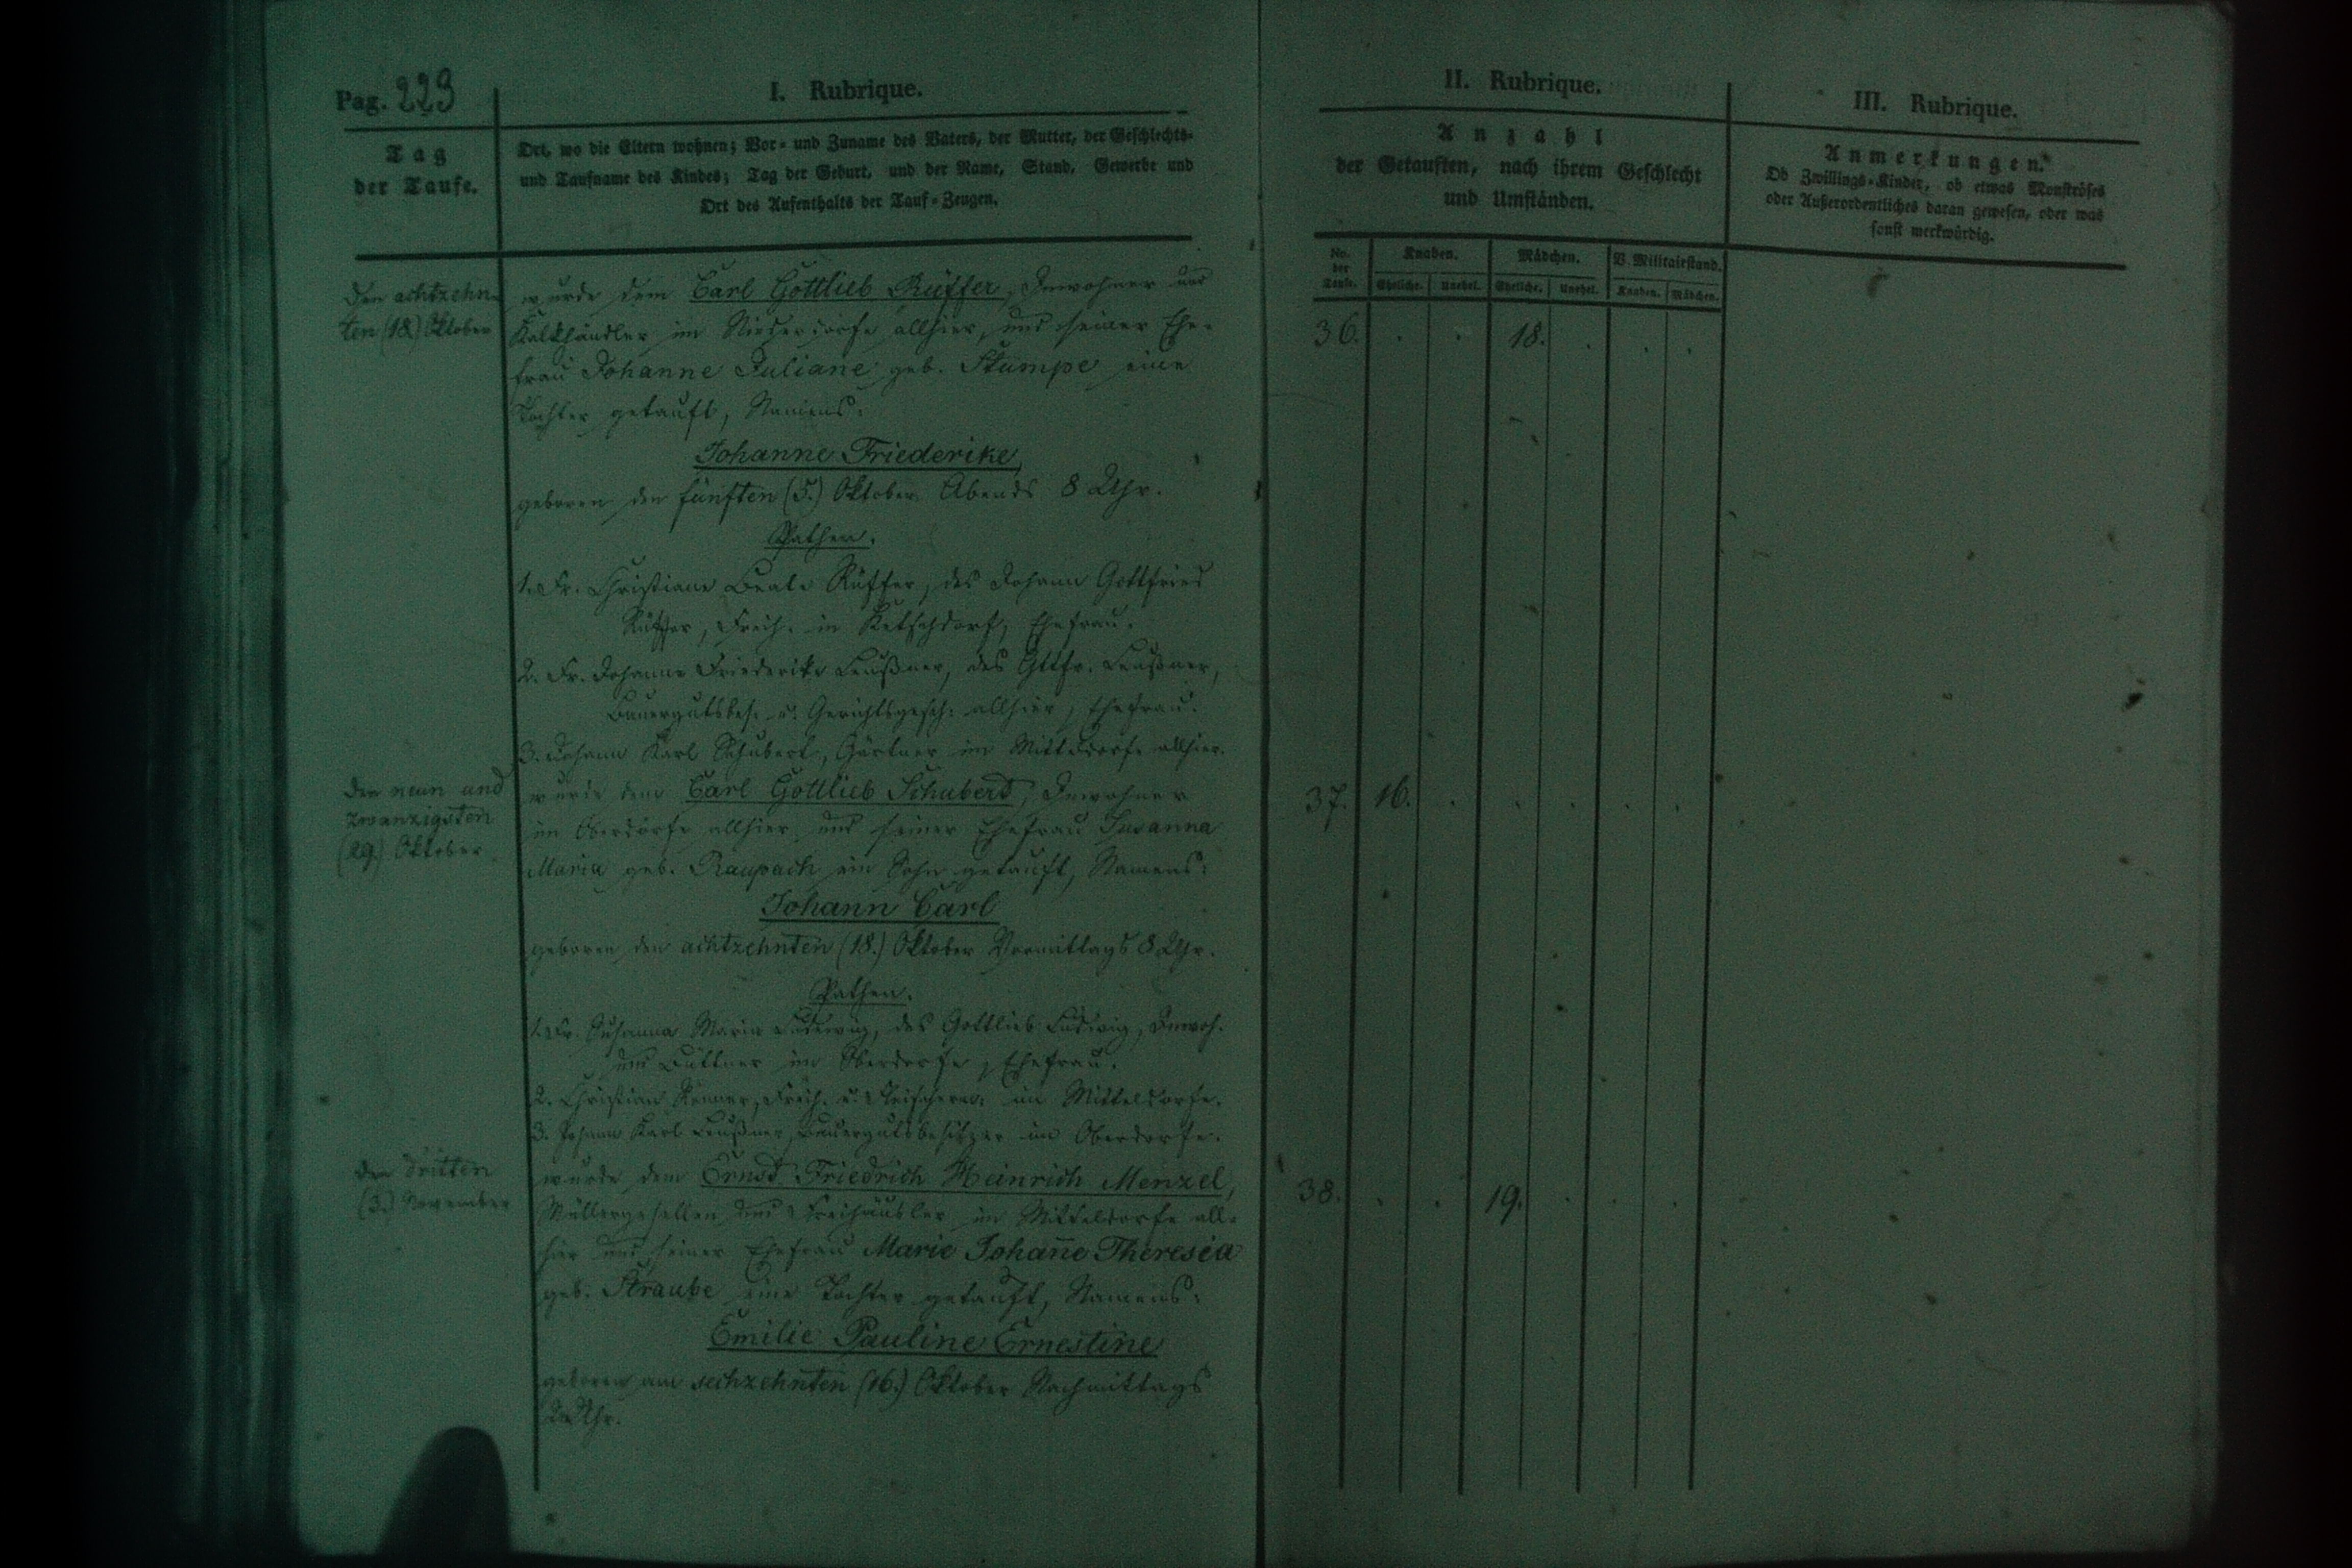 Pag. 223
I. Rubrique.
Tag
der Taufe.
Ort, wo die Eltern wohnen; Vor- und Zuname des Vaters, der Mutter, der Geschlechts-
und Taufname des Kindes; Tag der Geburt, und der Name, Stand, Gewerbe und
Ort des Aufenthalts der Tauf-Zeugen.
den achtzehn-
ten (18.) Oktober
wurde dem Carl Gottlieb Rüffer, Inwohner und
Kalkhändler im Niederdorfe allhier, und seiner Ehe-
frau Johanne Juliane geb. Stumpe eine
Tochter getauft, Namens:
Johanne Friederike,
geboren den fünften (5.) Oktober Abends 8 Uhr.
Pathen.
1. Fr. Christiane Beate Rüffer, des Johann Gottfried
Rüffer, Freih. in Ketschdorf, Ehefrau.
2. Fr. Johanne Friederike Leußner, des Gttfr. Leußner,
Bauergutsbes. u. Gerichtsgesch. allhier, Ehefrau.
3. Johann Karl Schubert, Gärtner im Mitteldorfe allhier.
den neun und
zwanzigsten
(29.) Oktober
wurde dem Carl Gottlieb Schubert, Inwohner
im Oberdorfe allhier und seiner Ehefrau Susanna
Maria geb. Raupach ein Sohn getauft, Namens:
Johann Carl
geboren den achtzehnten (18.) Oktober Vormittags 8 Uhr.
Pathen.
1. Fr. Susanna Maria Ludewig, des Gottlieb Ludwig, Inwoh.
und Büttner im Oberdorfe, Ehefrau.
2. Christian Renner, Freih. u. im Mitteldorfe.
3. Johann Karl Leußner, Bauergutsbesitzer im Oberdorfe.
den dritten
(3.) November
wurde dem Ernst Friedrich Heinrich Menzel,
Müllergesellen und Freihäusler im Mitteldorfe all-
hier und seiner Ehefrau Marie Johañe Theresia
geb. Straube eine Tochter getauft, Namens:
Emilie Pauline Ernestine
geboren am sechzehnten (16.) Oktober Nachmittags
2 Uhr.
II. Rubrique.
Anzahl
der Getauften, nach ihrem Geschlecht
und Umständen.
No. der Taufe. Knaben. Mädchen. V. Militairstand.
Eheliche. Unehel. Eheliche. Unehel. Knaben. Mädchen.
36. . . 18. . . .
37. 16. . . . . .
38. . . 19. . . .
III. Rubrique.
Anmerkungen.
Ob Zwillings-Kinder, ob etwas Monströses
oder Außerordentliches daran gewesen, oder was
sonst merkwürdig.